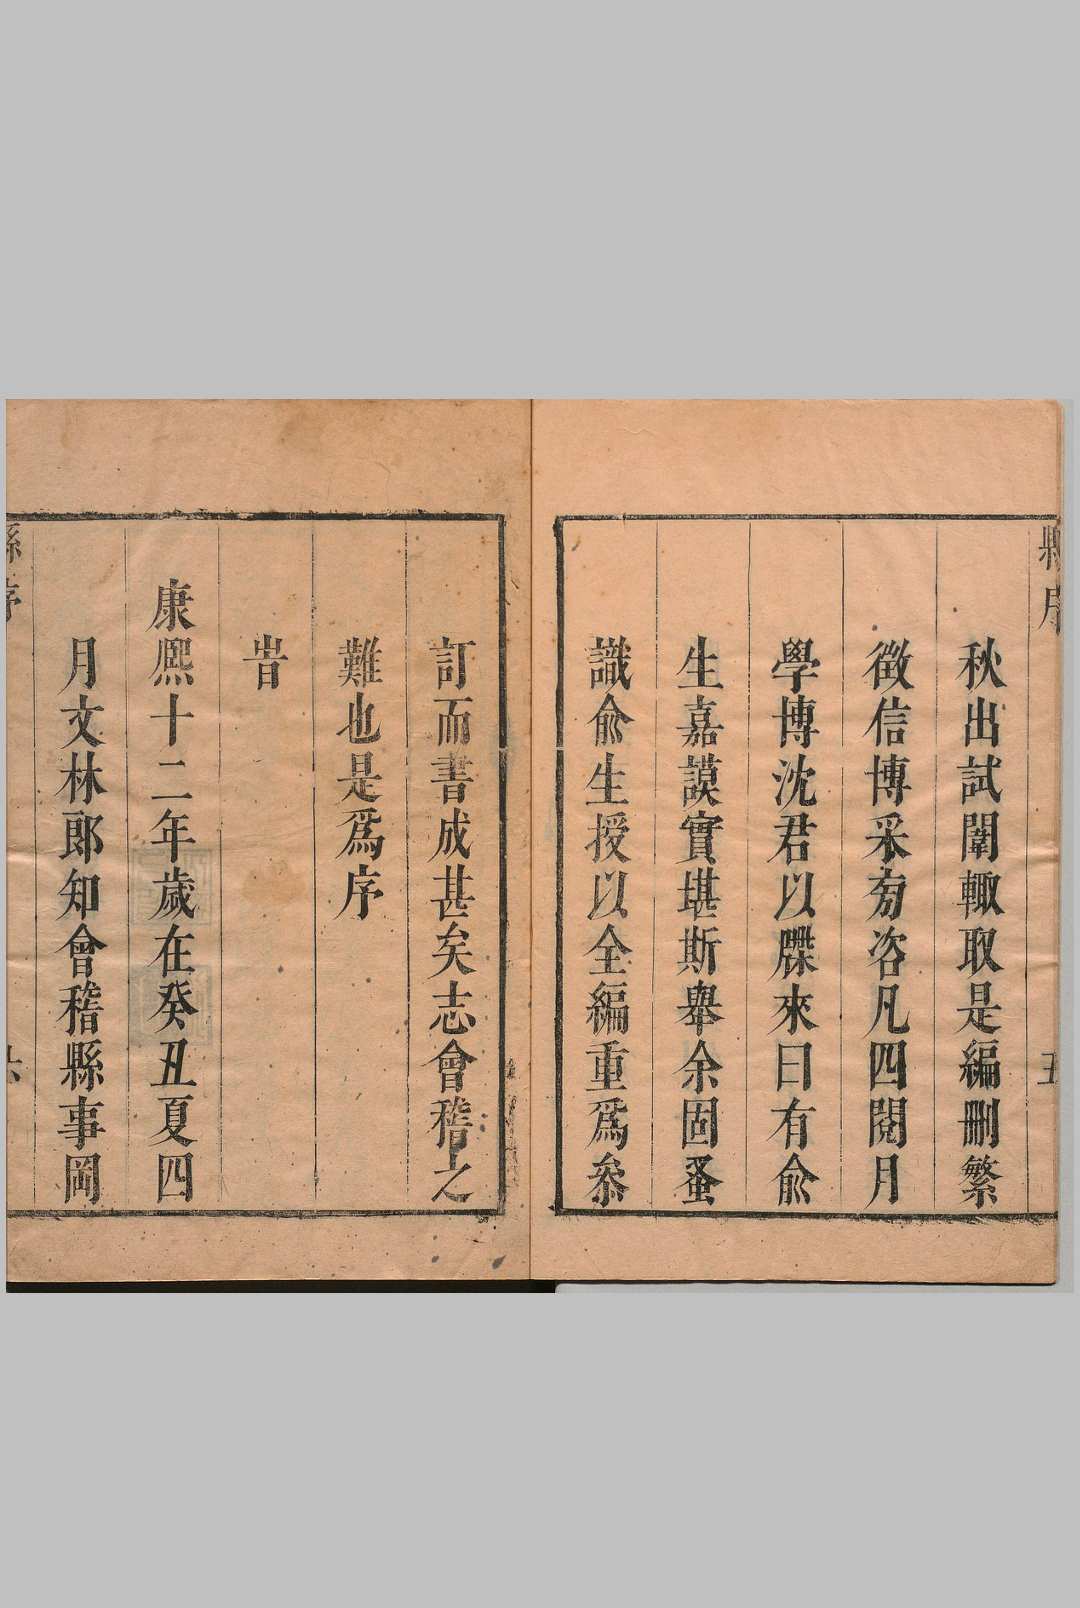 縣序
五
秋出試闈輙取是編刪繁
徵信博采旁咨凡四閱月
學博沈君以牒來曰有俞
生嘉謨實堪斯舉余固蚤
識俞生授以全編重爲叅
訂而書成甚矣志會稽之
難也是爲序
旹
康熈十二年歲在癸丑夏四
月文林郎知會稽縣事岡
縣序
六